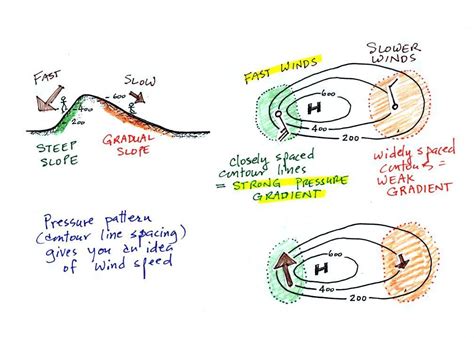 FAST
SLOW
600
400
200
STEEP
SLOPE
GRADUAL
SLOPE
Pressure pattern
(contour line spacing)
gives you an idea
of wind speed
FAST WINDS
SLOWER
WINDS
H
600
400
200
closely spaced
contour lines
= STRONG PRESSURE
GRADIENT
widely spaced
contours =
WEAK
GRADIENT
H
600
400
200